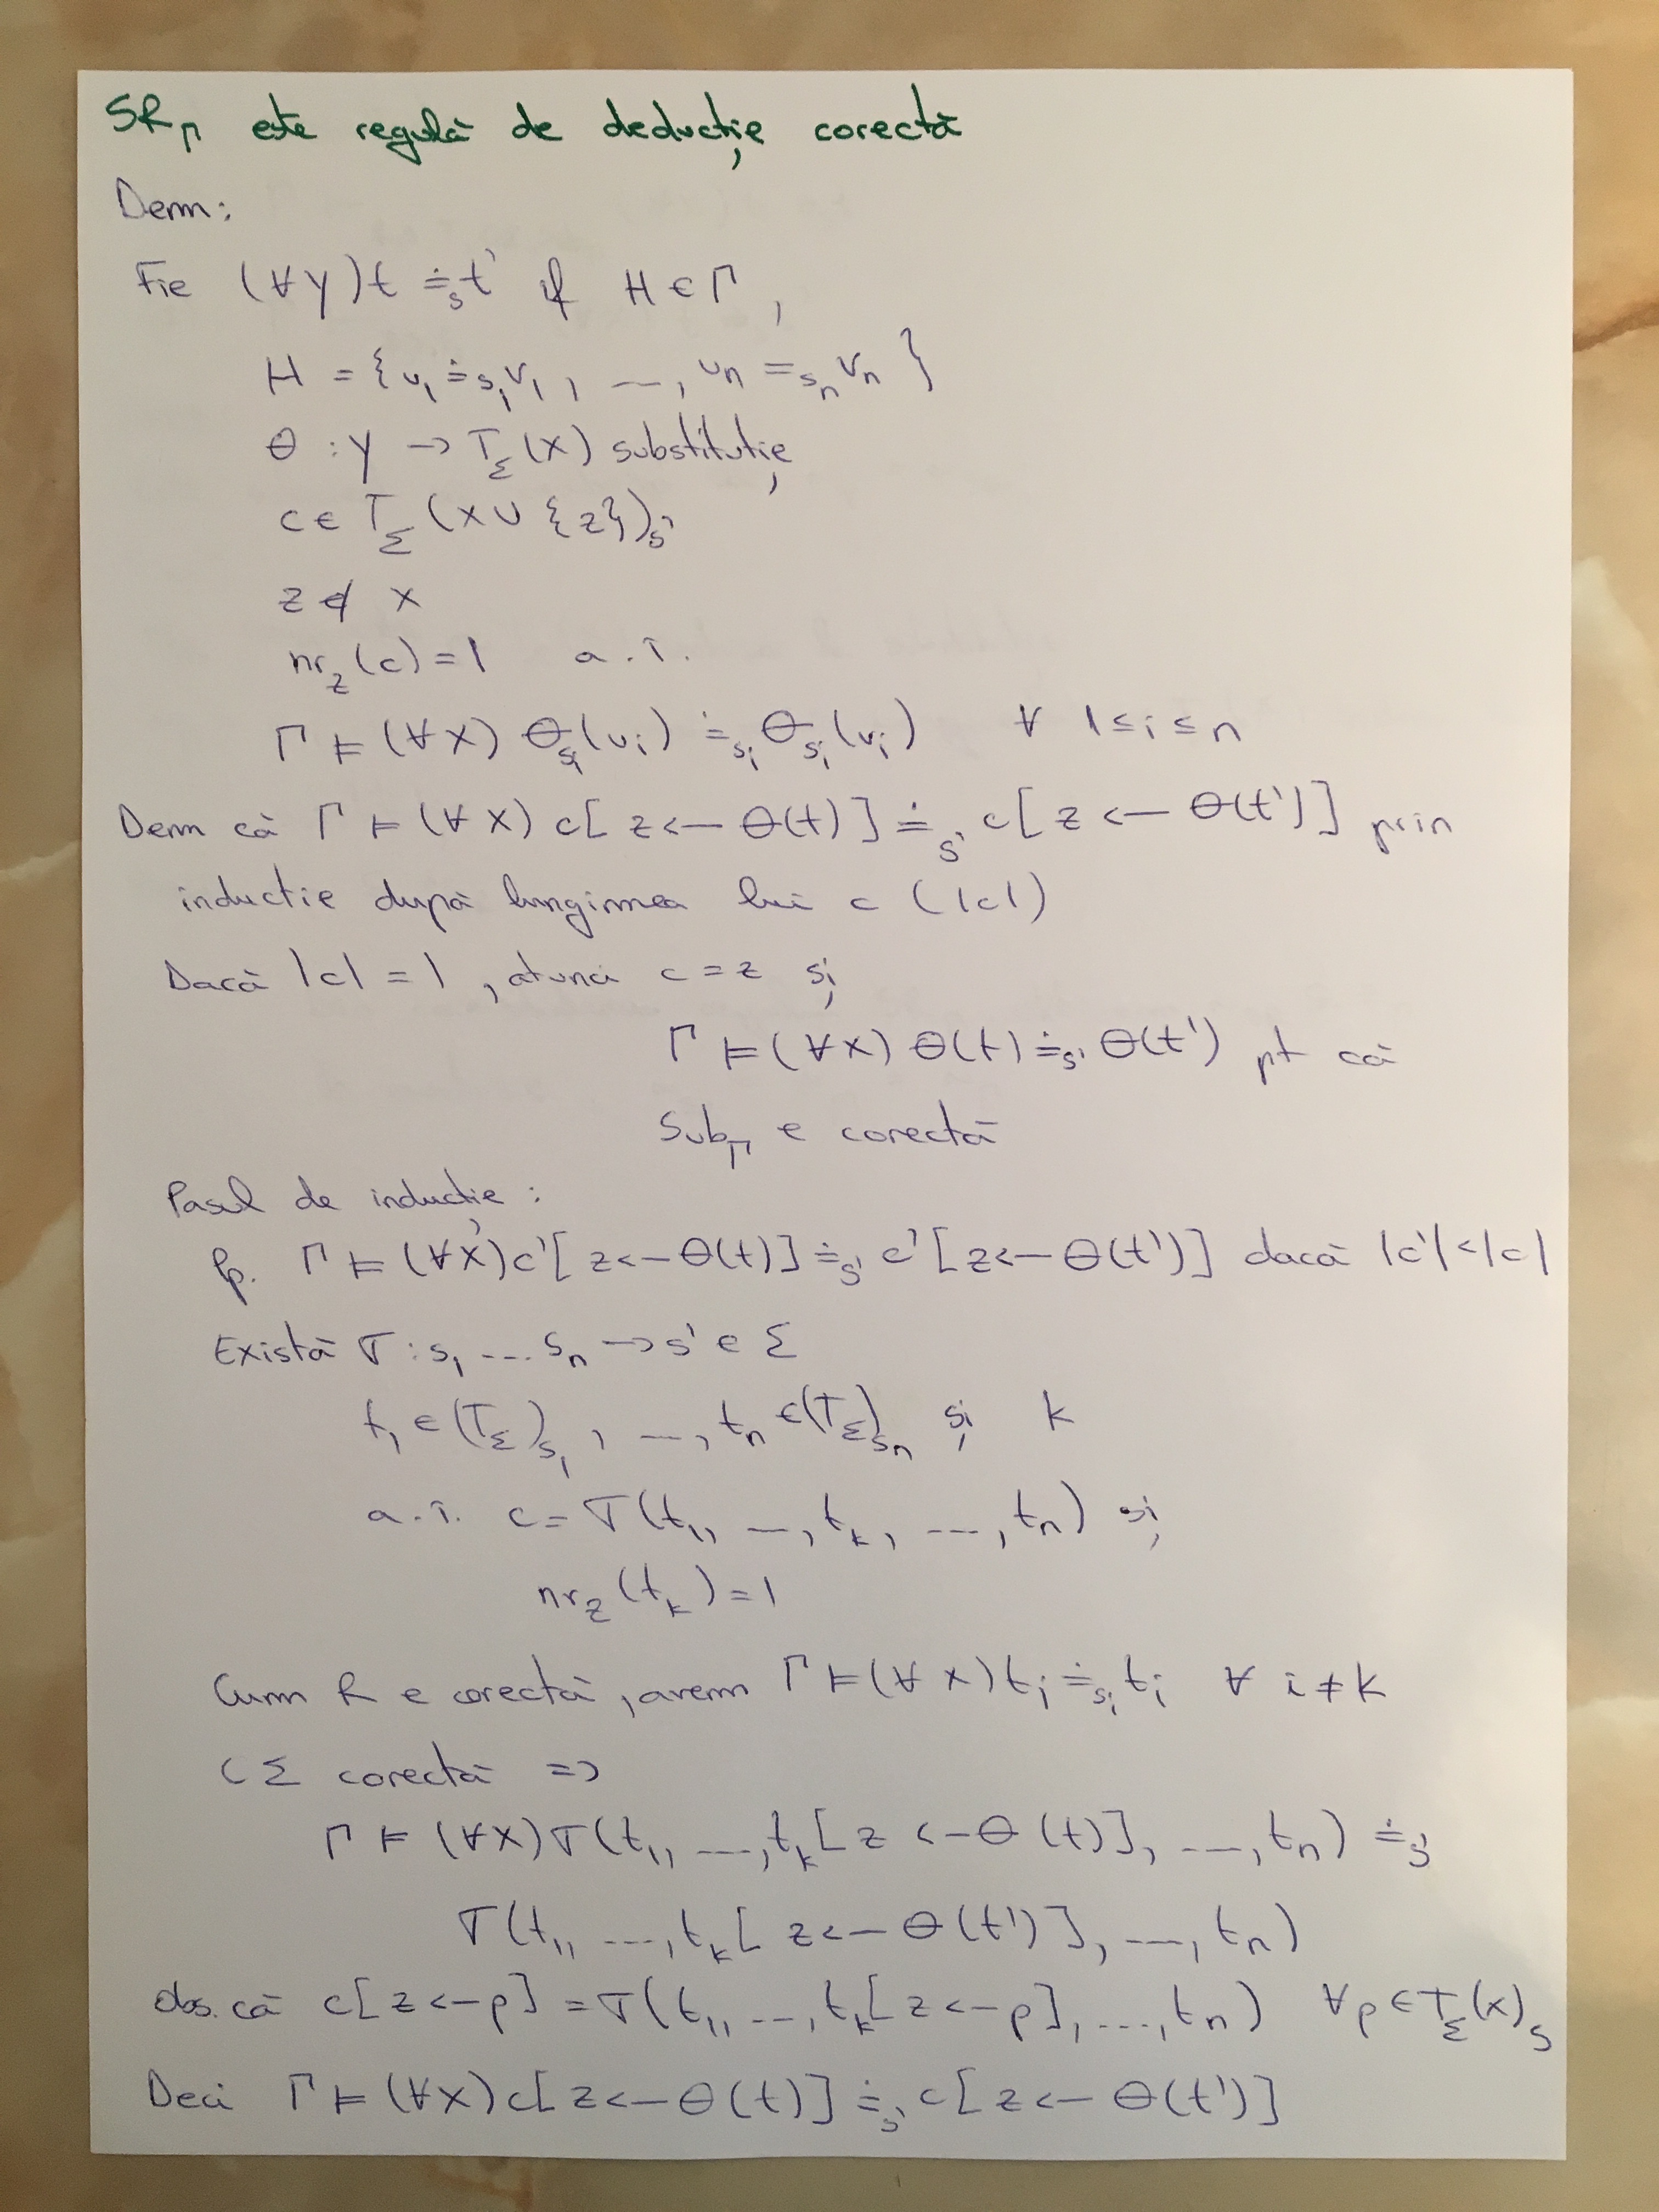 SR_Γ este regulă de deducție corectă
Dem:
Fie (∀Y)t ≐_s t' if H ∈ Γ,
H = {u_1 ≐_{s_1} v_1, ..., u_n =_{s_n} v_n}
θ : Y → T_Σ(X) substituție
c ∈ T_Σ(X ∪ {z})_{s'}
z ∉ X
nr_z(c) = 1 a.î.
Γ ⊨ (∀X) θ_{s_i}(u_i) ≐_{s_i} θ_{s_i}(v_i) ∀ 1 ≤ i ≤ n
Dem că Γ ⊨ (∀X) c[z ← θ(t)] ≐_{s'} c[z ← θ(t')] prin
inductie după lungimea lui c (|c|)
Dacă |c| = 1, atunci c = z și
Γ ⊨ (∀X) θ(t) ≐_{s'} θ(t') pt că
Sub_Γ e corectă
Pasul de inducție:
Pp. Γ ⊨ (∀X) c'[z ← θ(t)] ≐_{s'} c'[z ← θ(t')] dacă |c'| < |c|
Există σ : s_1 ... s_n → s' ∈ Σ
t_1 ∈ (T_Σ)_{s_1}, ..., t_n ∈ (T_Σ)_{s_n} și k
a.î. c = σ(t_1, ..., t_k, ..., t_n) și
nr_z(t_k) = 1
Cum R e corectă, avem Γ ⊨ (∀X) t_i ≐_{s_i} t_i ∀ i ≠ k
CΣ corectă =>
Γ ⊨ (∀X) σ(t_1, ..., t_k[z ← θ(t)], ..., t_n) ≐_{s'}
σ(t_1, ..., t_k[z ← θ(t')], ..., t_n)
obs. că c[z ← p] = σ(t_1, ..., t_k[z ← p], ..., t_n) ∀p ∈ T_Σ(X)_s
Deci Γ ⊨ (∀X) c[z ← θ(t)] ≐_{s'} c[z ← θ(t')]